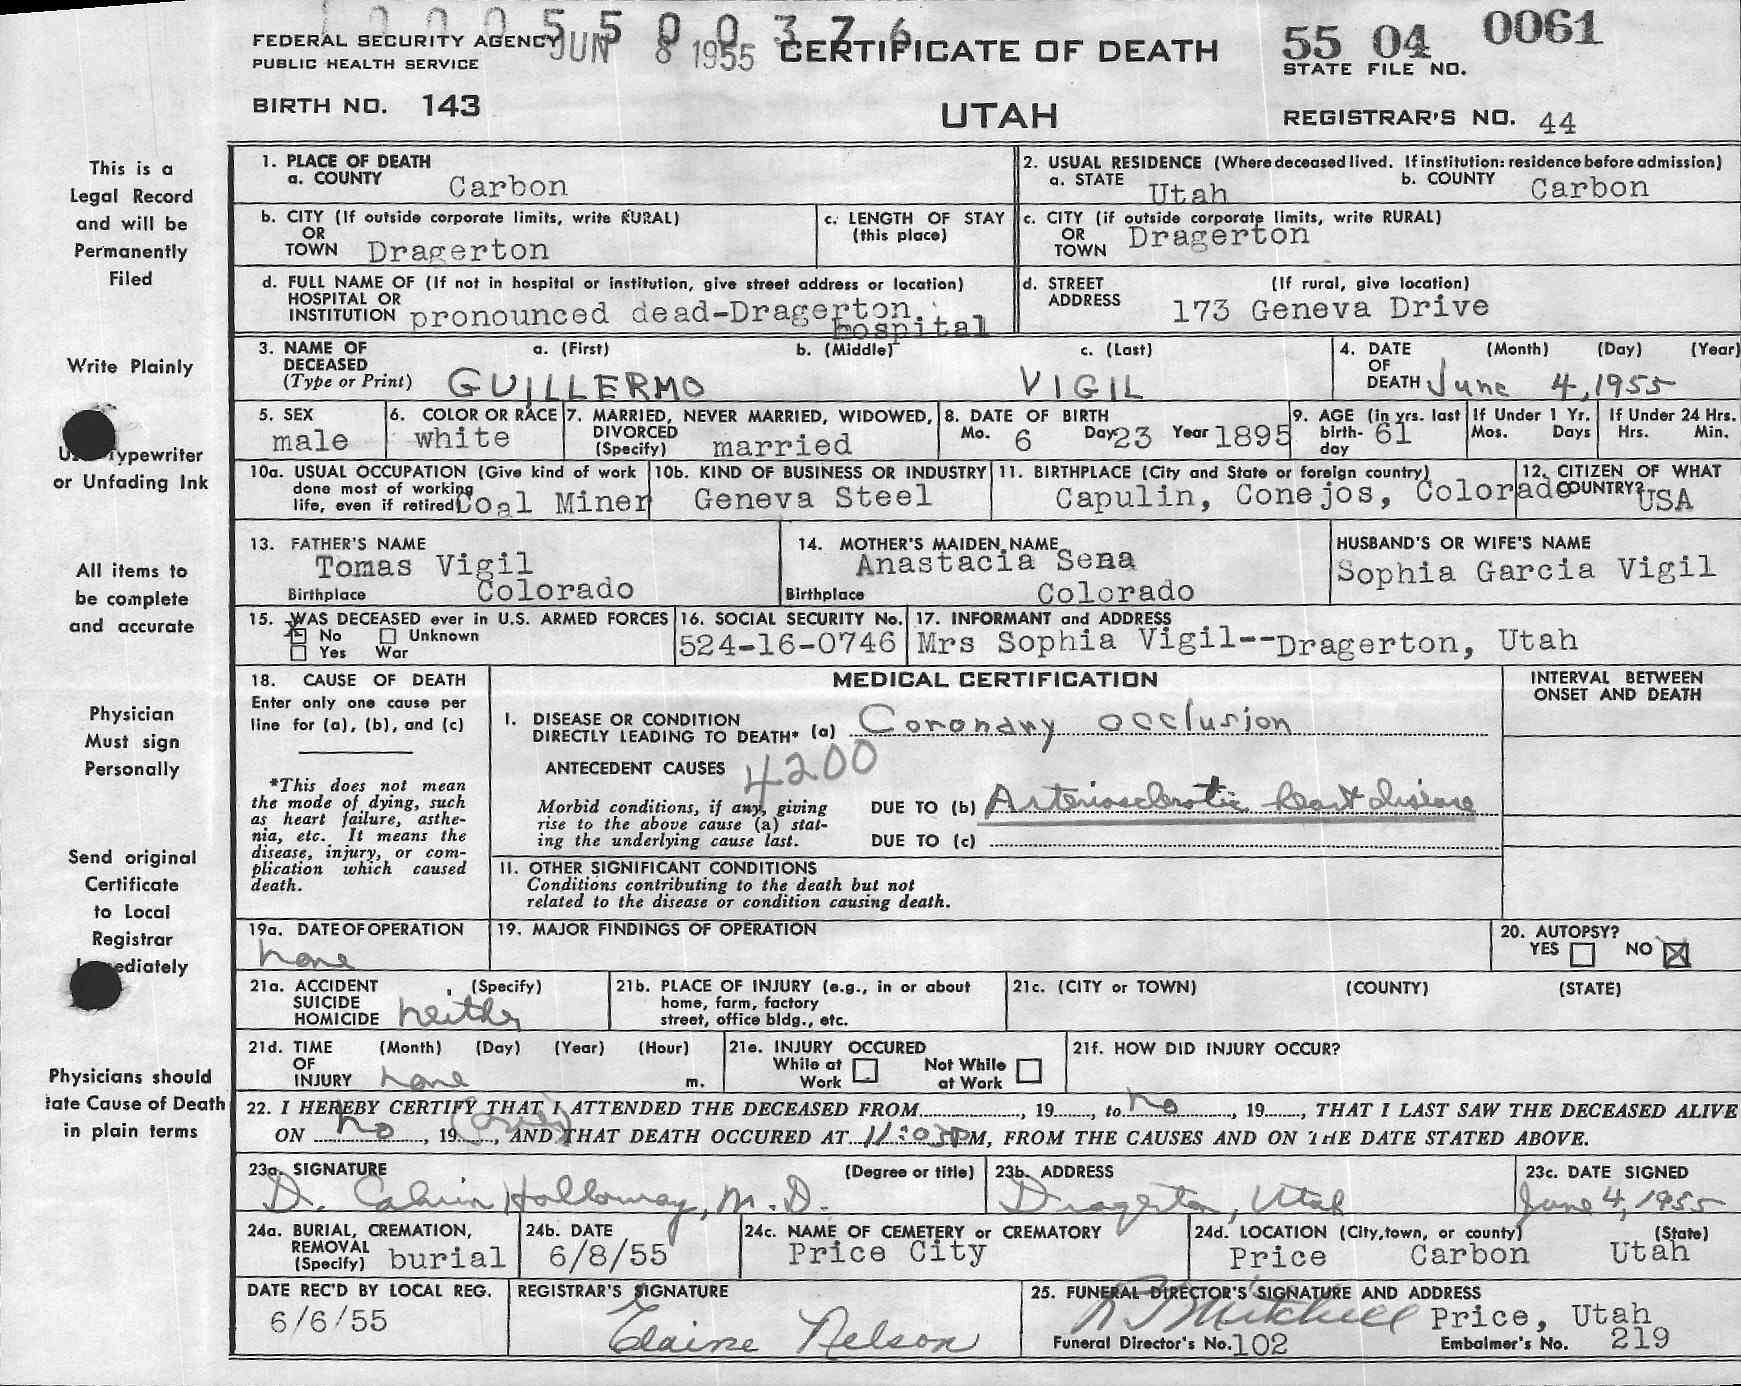 1 0 0 0 5 5 0 0 3 7 6
FEDERAL SECURITY AGENCY
PUBLIC HEALTH SERVICE
JUN 8 1955
CERTIFICATE OF DEATH
55 04 0061
STATE FILE NO.
BIRTH NO. 143
UTAH
REGISTRAR'S NO. 44
This is a
Legal Record
and will be
Permanently
Filed
Write Plainly
Typewriter
or Unfading Ink
All items to
be complete
and accurate
Physician
Must sign
Personally
Send original
Certificate
to Local
Registrar
ediately
Physicians should
tate Cause of Death
in plain terms
1. PLACE OF DEATH
a. COUNTY Carbon
2. USUAL RESIDENCE (Where deceased lived. If institution: residence before admission)
a. STATE Utah b. COUNTY Carbon
b. CITY (If outside corporate limits, write RURAL)
OR
TOWN Dragerton
c. LENGTH OF STAY
(this place)
c. CITY (if outside corporate limits, write RURAL)
OR
TOWN Dragerton
d. FULL NAME OF (If not in hospital or institution, give street address or location)
HOSPITAL OR
INSTITUTION pronounced dead-Dragerton.
hospital
d. STREET (If rural, give location)
ADDRESS 173 Geneva Drive
3. NAME OF a. (First) b. (Middle) c. (Last)
DECEASED
(Type or Print) GUILLERMO VIGIL
4. DATE (Month) (Day) (Year)
OF
DEATH June 4, 1955
5. SEX
male
6. COLOR OR RACE
white
7. MARRIED, NEVER MARRIED, WIDOWED,
DIVORCED
(Specify) married
8. DATE OF BIRTH
Mo. 6 Day 23 Year 1895
9. AGE (in yrs. last
birth- 61
day
If Under 1 Yr.
Mos. Days
If Under 24 Hrs.
Hrs. Min.
10a. USUAL OCCUPATION (Give kind of work
done most of working
life, even if retired) Coal Miner
10b. KIND OF BUSINESS OR INDUSTRY
Geneva Steel
11. BIRTHPLACE (City and State or foreign country)
Capulin, Conejos, Colorado
12. CITIZEN OF WHAT
COUNTRY? USA
13. FATHER'S NAME
Tomas Vigil
Birthplace Colorado
14. MOTHER'S MAIDEN NAME
Anastacia Sena
Birthplace Colorado
HUSBAND'S OR WIFE'S NAME
Sophia Garcia Vigil
15. WAS DECEASED ever in U.S. ARMED FORCES
No Unknown
Yes War
16. SOCIAL SECURITY No.
524-16-0746
17. INFORMANT and ADDRESS
Mrs Sophia Vigil--Dragerton, Utah
18. CAUSE OF DEATH
Enter only one cause per
line for (a), (b), and (c)
*This does not mean
the mode of dying, such
as heart failure, asthe-
nia, etc. It means the
disease, injury, or com-
plication which caused
death.
MEDICAL CERTIFICATION
INTERVAL BETWEEN
ONSET AND DEATH
I. DISEASE OR CONDITION
DIRECTLY LEADING TO DEATH* (a) Coronary occlusion
ANTECEDENT CAUSES 4200
Morbid conditions, if any, giving
rise to the above cause (a) stat-
ing the underlying cause last.
DUE TO (b) Arteriosclerotic heart disease
DUE TO (c)
II. OTHER SIGNIFICANT CONDITIONS
Conditions contributing to the death but not
related to the disease or condition causing death.
19a. DATE OF OPERATION
none
19. MAJOR FINDINGS OF OPERATION
20. AUTOPSY?
YES NO
21a. ACCIDENT (Specify)
SUICIDE
HOMICIDE neither
21b. PLACE OF INJURY (e.g., in or about
home, farm, factory
street, office bldg., etc.
21c. (CITY or TOWN) (COUNTY) (STATE)
21d. TIME (Month) (Day) (Year) (Hour)
OF
INJURY none m.
21e. INJURY OCCURED
While at Work Not While at Work
21f. HOW DID INJURY OCCUR?
22. I HEREBY CERTIFY THAT I ATTENDED THE DECEASED FROM, 19, to no, 19, THAT I LAST SAW THE DECEASED ALIVE
ON no, 19, AND THAT DEATH OCCURED AT 11:03 PM, FROM THE CAUSES AND ON THE DATE STATED ABOVE.
23a. SIGNATURE (Degree or title)
D. Calvin Holloway, M.D.
23b. ADDRESS
Dragerton, Utah
23c. DATE SIGNED
June 4, 1955
24a. BURIAL, CREMATION,
REMOVAL
(Specify) burial
24b. DATE
6/8/55
24c. NAME OF CEMETERY or CREMATORY
Price City
24d. LOCATION (City, town, or county) (State)
Price Carbon Utah
DATE REC'D BY LOCAL REG.
6/6/55
REGISTRAR'S SIGNATURE
Elaine Nelson
25. FUNERAL DIRECTOR'S SIGNATURE AND ADDRESS
Mitchell Price, Utah
Funeral Director's No. 102 Embalmer's No. 219